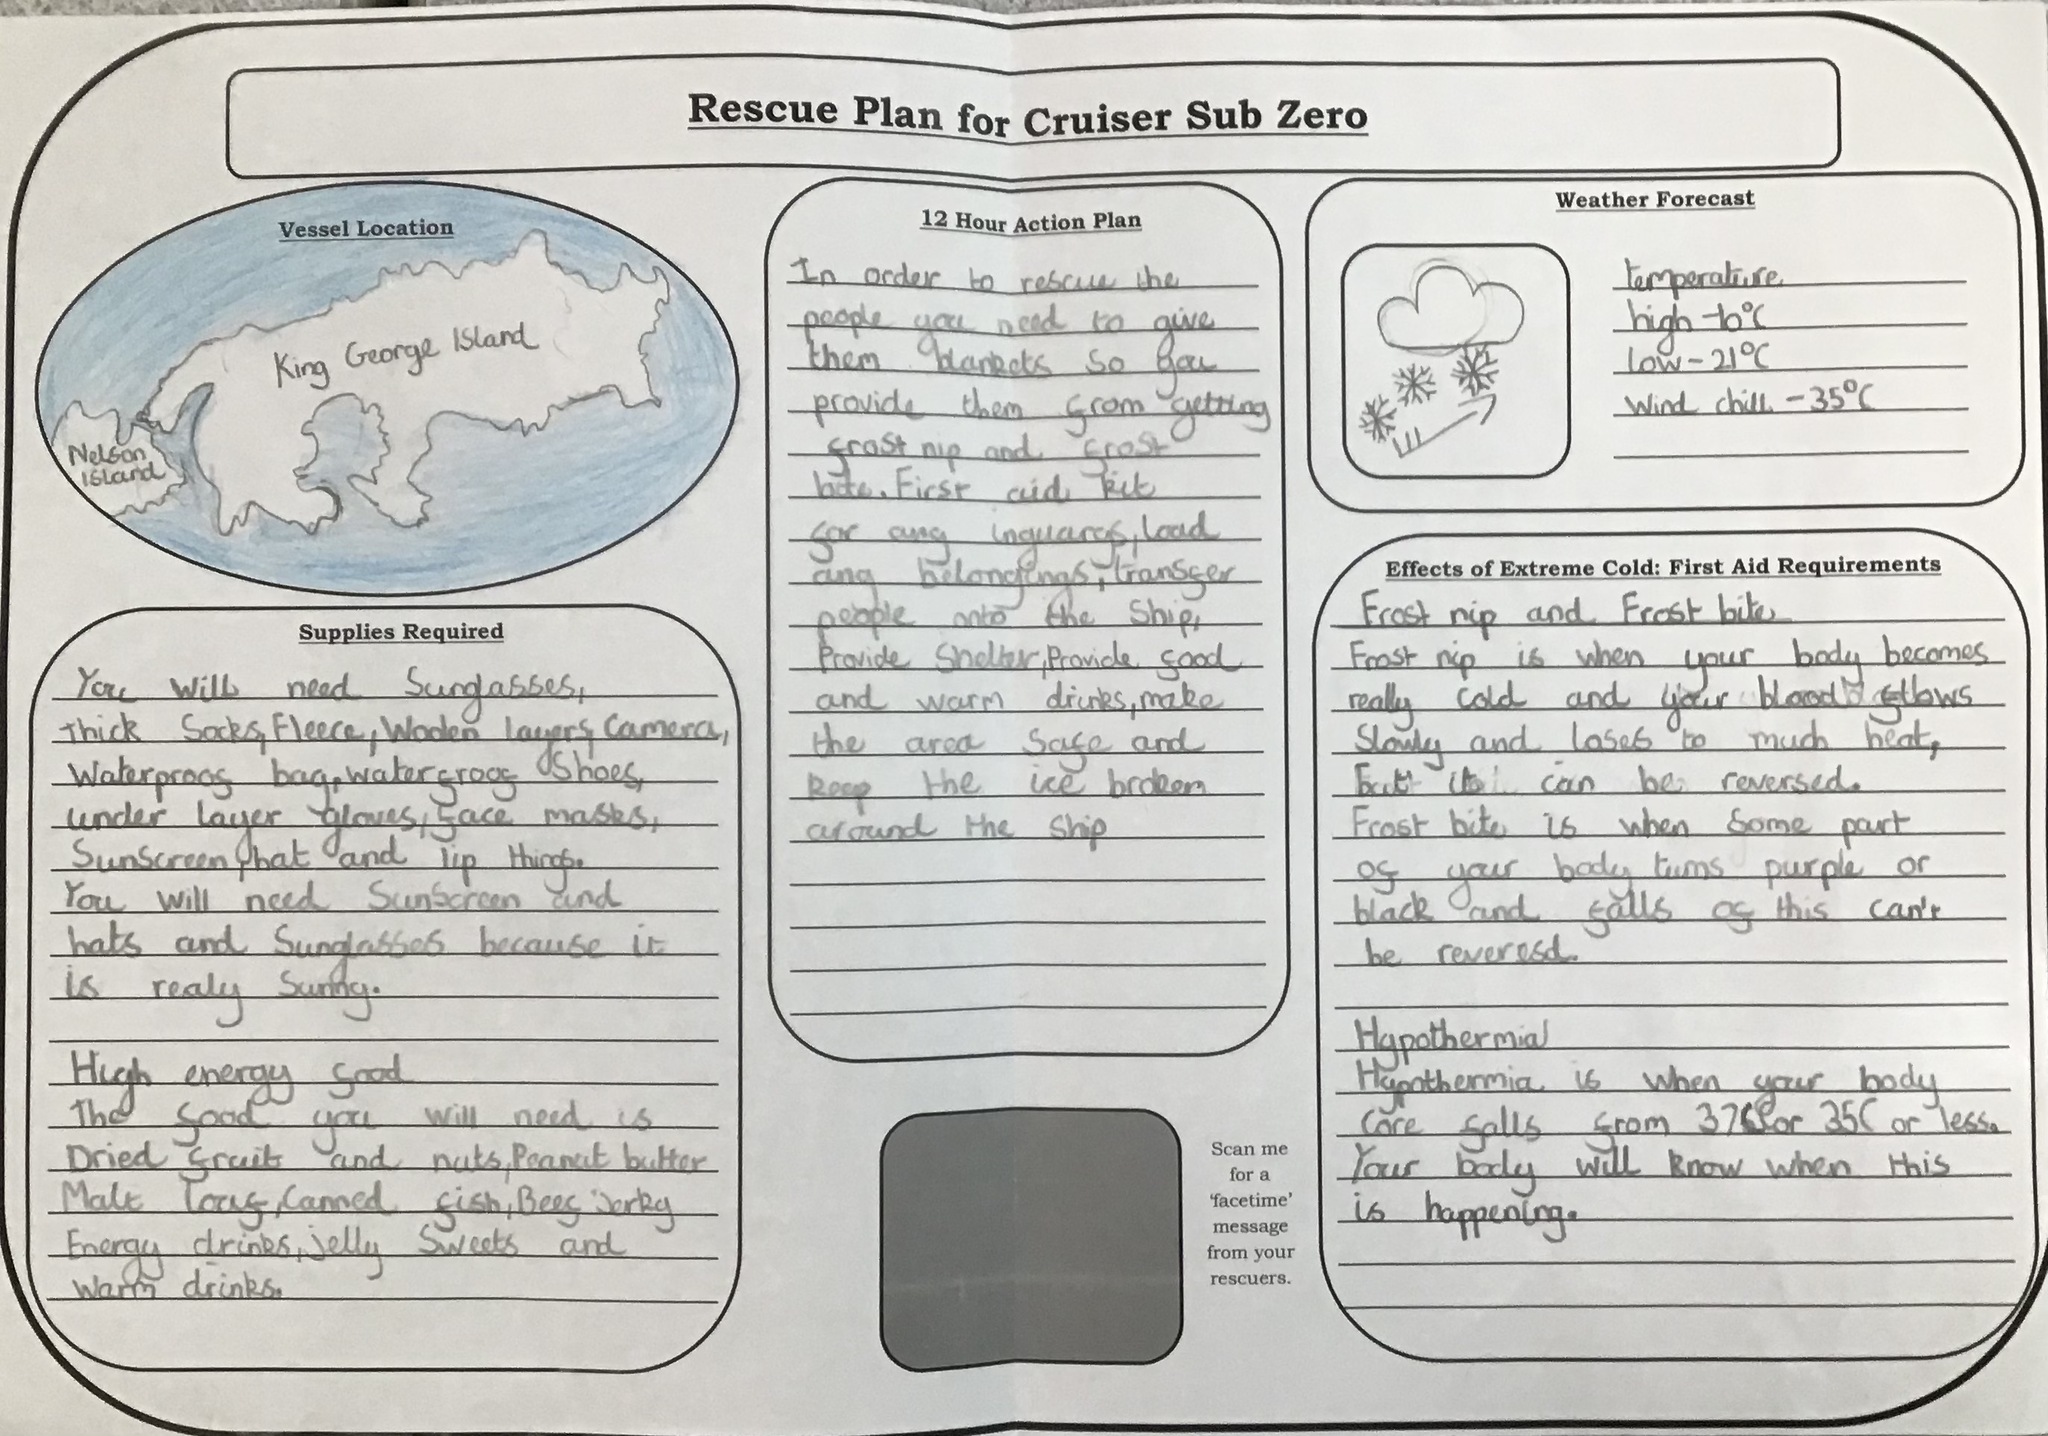 Rescue Plan for Cruiser Sub Zero
Vessel Location
King George Island
Nelson
Island
Supplies Required
You will need Sunglasses,
thick Socks, Fleece, Woolen layers, Camera,
Waterproof bag, waterproof Shoes,
under layer gloves, face masks,
Sunscreen, hat and lip things.
You will need Sunscreen and
hats and Sunglasses because it
is realy Sunny.
High energy food
The food you will need is
Dried fruit and nuts, Peanut butter
Malt loaf, Canned fish, Beef jerky
Energy drinks, jelly Sweets and
warm drinks.
12 Hour Action Plan
In order to rescue the
people you need to give
them blankets so you
provide them from getting
frost nip and frost
bite. First aid kit
for any inguarys, load
any belongings, transfer
people onto the Ship,
Provide Shelter, Provide food
and warm drinks, make
the area Safe and
keep the ice broken
around the ship
Scan me
for a
'facetime'
message
from your
rescuers.
Weather Forecast
temperature
high -10°C
low -21°C
Wind chill -35°C
Effects of Extreme Cold: First Aid Requirements
Frost nip and Frost bite
Frost nip is when your body becomes
really cold and your blood flows
Slowly and loses to much heat,
but it can be reversed.
Frost bite is when Some part
of your body turns purple or
black and falls of this can't
be reveresd.
Hypothermia
Hypothermia is when your body
Core falls from 37C or 35C or less.
Your body will know when this
is happening.